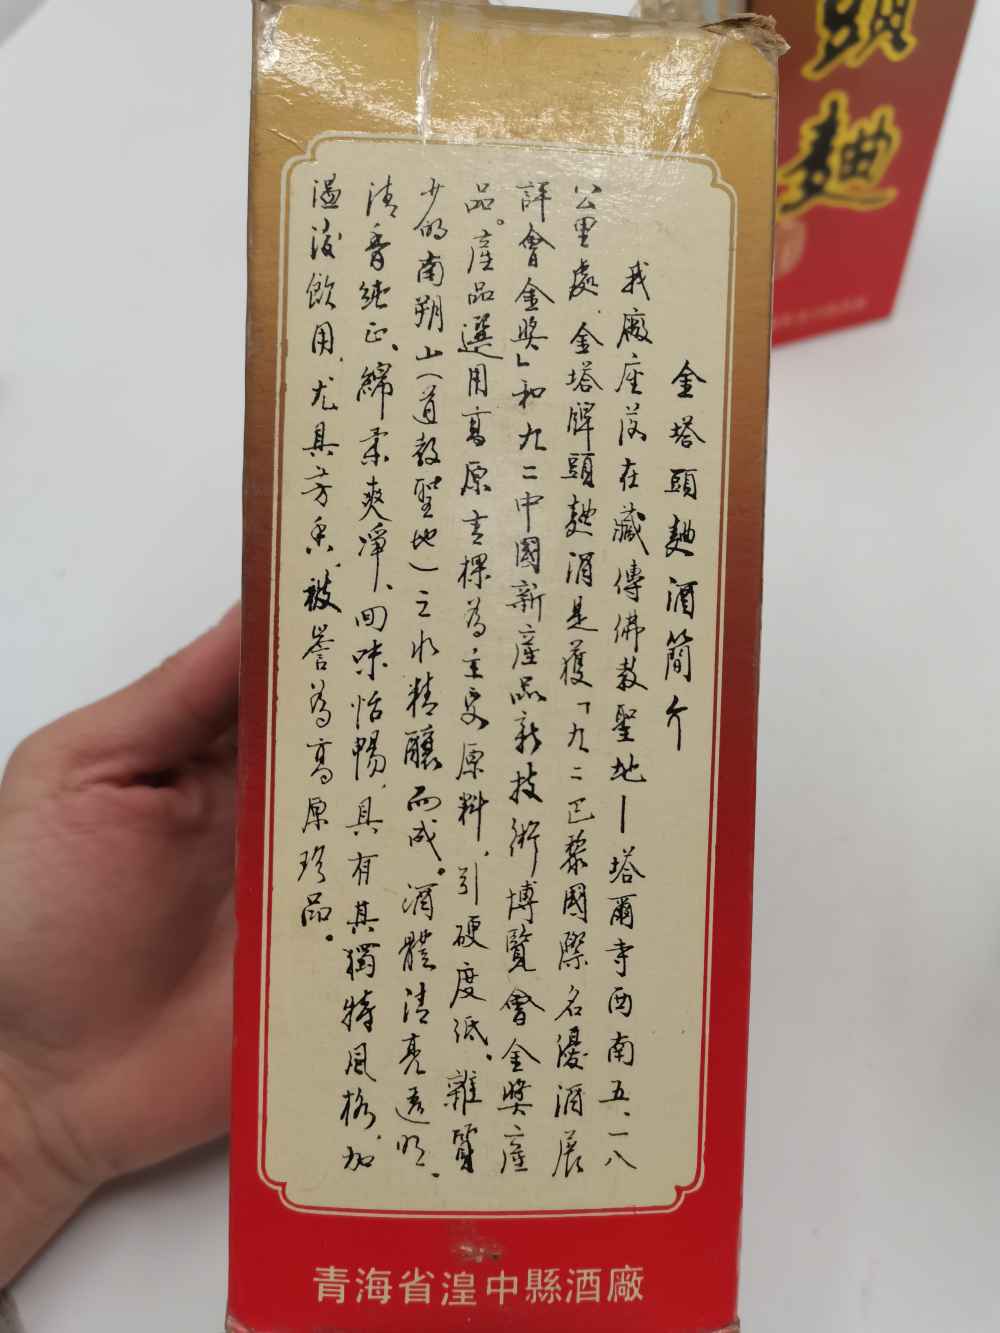 金塔頭麯酒簡介
我廠座落在藏傳佛教聖地—塔爾寺西南五.一八
公里處,金塔牌頭麯酒是獲「九二巴黎國際名優酒展
評會金獎」和九二中國新產品新技術博覽會金獎產
品。產品選用高原青稞為主要原料,引硬度低、雜質
少的南朔山(道教聖地)之水精釀而成。酒體清亮透明、
清香純正、綿柔爽凈、回味怡暢,具有其獨特風格,加
溫後飲用,尤具芳香,被譽為高原珍品。
青海省湟中縣酒廠
頭麯